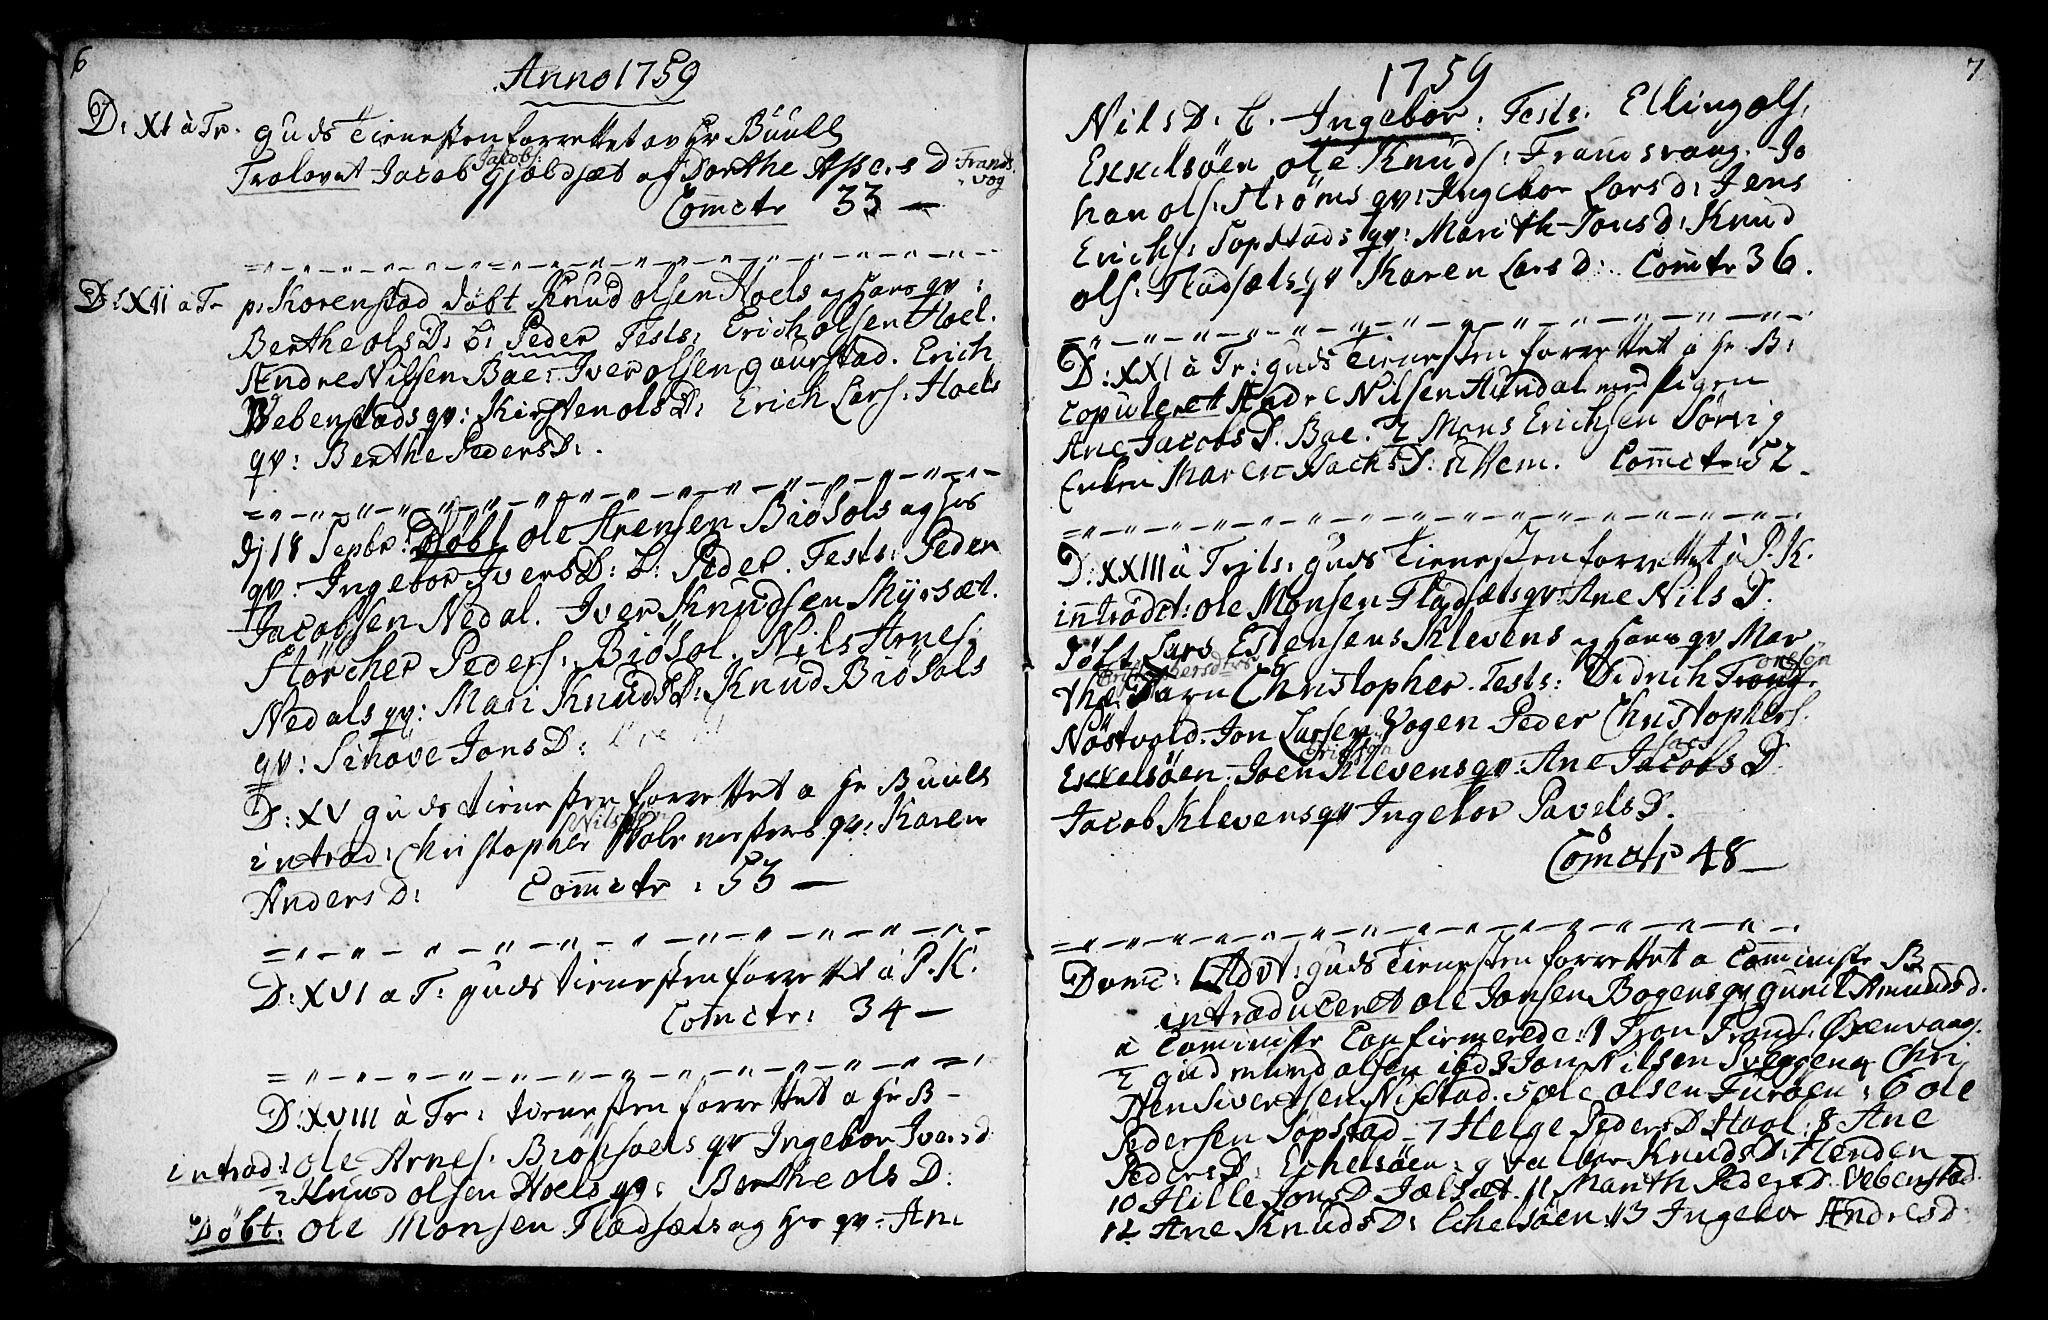 6
Anno 1759
D: XI à Tr. guds Tienesten forrettet av Hr Buull
Trolovet Jacob Jakobs: Gjøldsæt og Dorthe Asse:s D Trands
vog
Com̄ctr 33 —
D: XII à Tr p: Korenstad døbt Knud olsen Hoels og hans qv:
Berthe ols D: b: Peder Tests: Erich olsen Hoel.
Andre Nilsen Bae: Iver olsen gaustad. Erich
Vebenstads qv: Kirsten ols D: Erich Lars: Hoels
qv: Berthe Peders D:.
Dj 18 Sepbr: Døbt ole Arensen Biösols og hs
qv: Ingebor Ivers D: b: Peder. Tests: Peder
Jacobsen Nedal. Iver Knudsen Myrsæt.
Störcher Peders: Biösol. Nils Arnes:
Nedals qv: Mari Knuds D: Knud Biösols
qv: Sinove Jons D:
D: XV guds tienesten forrettet a Hr Buull
Nilssøn
introd: Christopher qv: Karen
Anders D: Com̄ctr: 53 —
D: XVI a T: guds tienesten forrettet à P. K.
Com̄ctr: 34 —
D: XVIII à Tr: tienesten forrettet a Hr B —
introd: 1 ole Arnes: Biösoels qv Ingebor Ivers d
2 Knud olsen Hoels qv: Berthe ols D:
Døbt: ole Monsen Flædsæts og hs qv: Ane
7
1759
Nils D: b. Ingebor: Tests. Elling ols:
Exkelsöen ole Knuds: Frandsvaag. Jo
han ols: Ströms qv: Ingebor Lars D: Jens
Erichs: Sopstads qv: Marith Jons D: Knud
ols: Fladsæts qv Karen Lars D: Com̄ctr 36.
D: XXI à Tr: guds Tienesten forrettet à Hr B:
copuleret Andre Nilsen Hundal med pigen
Ane Jacobs D. Bae. 2 Mons Erichsen Sørvig
Enken Maren Isachs D: Ulhem. Com̄ctr 52 —
D: XXIII à Trits: guds Tienesten forrettet à P. K.
introdct: ole Monsen Fladsæts qv Ane Nils D.
Døbt Lars Estensens Klevens og hans qv Mar
the Barn Christopher. Tests: Didrich
Nöstvold. Jon Larsen Vogen Peder Christophers.
Exkelsöen. Joen Klevens qv. Ane Jacobs D.
Jacob Klevens qv Ingebor Pavels D.
Com̄ctr 48 —
Domc: 1 Advt: guds Tienesten forrettet a Com̄inistr B
introduceret ole Jonsen Bogens qv Gunil Amunds d.
à Com̄inistr Confirmerede: 1 Tron Trands: Öxenvaag.
2 gudmund olsen ibd 3 Jon Nilsen Sveggen 4 Chri
sten Sivertsen Nistad. 5 ole olsen Furöen: 6 ole
Pedersen Sopstad 7 Helge Peders D Hool. 8 Ane
Peders D: Echelsöen: 9 Knuds D: Henden
10 Hille Jons D Jælsæt. 11 Marith Peders D. Vebenstad.
12 Ane Knuds D: Echelsöen: 13 Ingebor Andres D